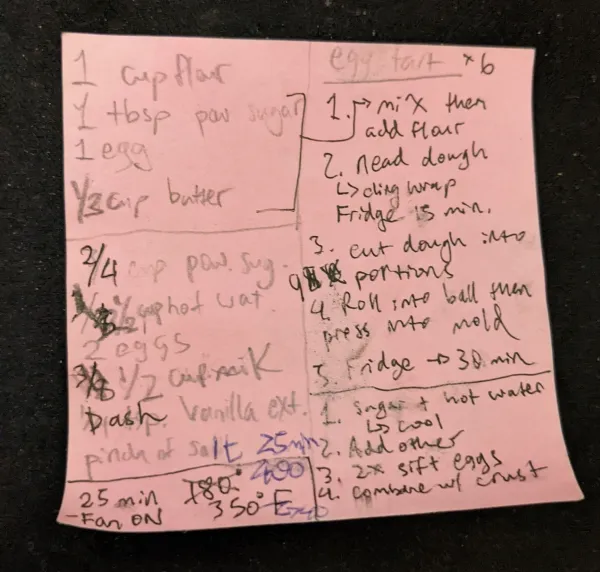 1 cup flour
1 tbsp pow sugar
1 egg
1/3 cup butter
2/4 cup pow. sug.
1/2 cup hot wat.
2 eggs
3/8 1/2 cup milk
Dash Vanilla ext.
pinch of salt
25 min
400
25 min 180°
-Fan ON 350°F
egg tart x6
1. → mix then
add flour
2. nead dough
↳ cling wrap
Fridge 15 min.
3. cut dough into
9 portions
4. Roll into ball then
press into mold
5. Fridge → 30 min
1. sugar + hot water
↳ cool
2. Add other
3. 2x sift eggs
4. combine w/ crust